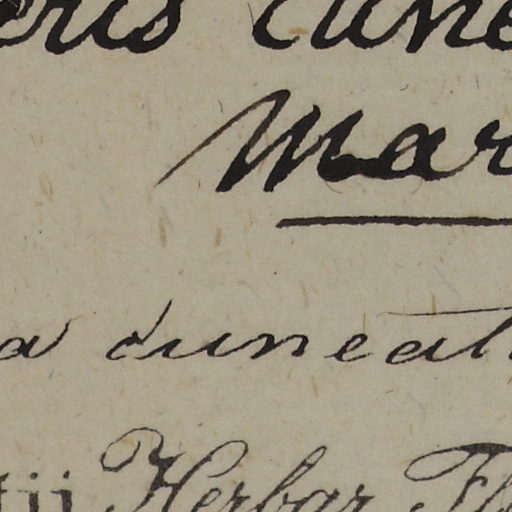 eris cune
Mar
a cuneat
tii Herbar. Fl